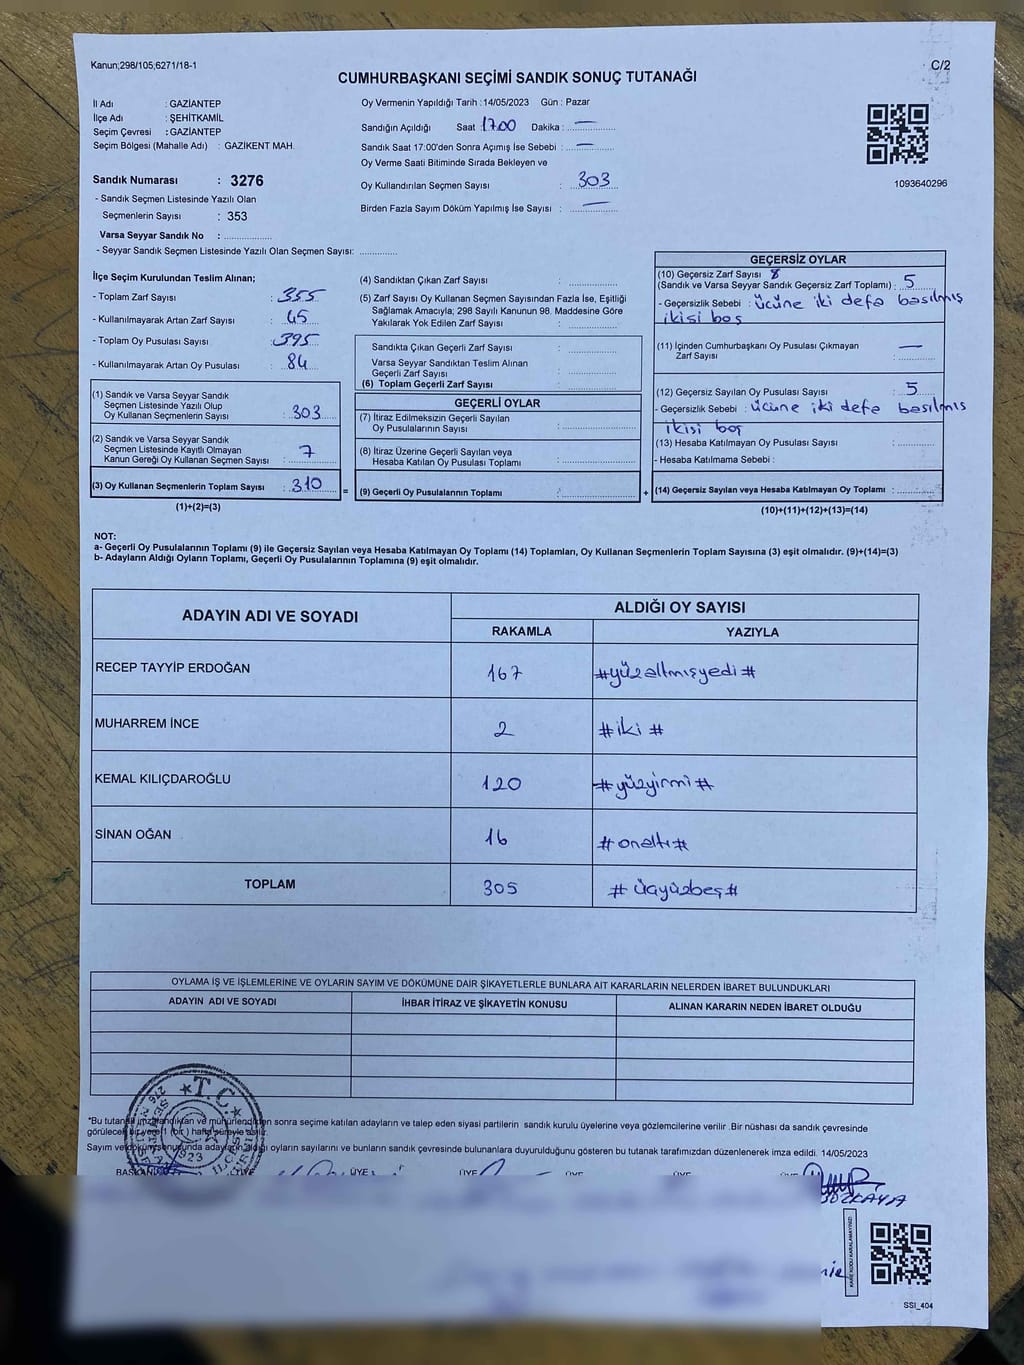 Kanun;298/105,6271/18-1
C/2
CUMHURBAŞKANI SEÇİMİ SANDIK SONUÇ TUTANAĞI
İl Adı : GAZİANTEP
İlçe Adı : ŞEHİTKAMİL
Seçim Çevresi : GAZİANTEP
Seçim Bölgesi (Mahalle Adı) : GAZİKENT MAH.
Sandık Numarası : 3276
- Sandık Seçmen Listesinde Yazılı Olan
Seçmenlerin Sayısı : 353
Varsa Seyyar Sandık No : ..............
- Seyyar Sandık Seçmen Listesinde Yazılı Olan Seçmen Sayısı: ............
Oy Vermenin Yapıldığı Tarih :14/05/2023 Gün : Pazar
Sandığın Açıldığı Saat :17.00 Dakika : —
Sandık Saat 17:00'den Sonra Açımış İse Sebebi : —
Oy Verme Saati Bitiminde Sırada Bekleyen ve
Oy Kullandırılan Seçmen Sayısı : 303
Birden Fazla Sayım Döküm Yapılmış İse Sayısı : —
1093640296
İlçe Seçim Kurulundan Teslim Alınan;
- Toplam Zarf Sayısı : 355
- Kullanılmayarak Artan Zarf Sayısı : 45
- Toplam Oy Pusulası Sayısı : 395
- Kullanılmayarak Artan Oy Pusulası : 84
(1) Sandık ve Varsa Seyyar Sandık
Seçmen Listesinde Yazılı Olup
Oy Kullanan Seçmenlerin Sayısı : 303
(2) Sandık ve Varsa Seyyar Sandık
Seçmen Listesinde Kayıtlı Olmayan
Kanun Gereği Oy Kullanan Seçmen Sayısı : 7
(3) Oy Kullanan Seçmenlerin Toplam Sayısı : 310
(1)+(2)=(3)
(4) Sandıktan Çıkan Zarf Sayısı :
(5) Zarf Sayısı Oy Kullanan Seçmen Sayısından Fazla İse, Eşitliği
Sağlamak Amacıyla; 298 Sayılı Kanunun 98. Maddesine Göre
Yakılarak Yok Edilen Zarf Sayısı :
Sandıkta Çıkan Geçerli Zarf Sayısı :
Varsa Seyyar Sandıktan Teslim Alınan
Geçerli Zarf Sayısı :
(6) Toplam Geçerli Zarf Sayısı
GEÇERLİ OYLAR
(7) İtiraz Edilmeksizin Geçerli Sayılan
Oy Pusulalarının Sayısı :
(8) İtiraz Üzerine Geçerli Sayılan veya
Hesaba Katılan Oy Pusulası Toplamı :
= (9) Geçerli Oy Pusulalarının Toplamı :
GEÇERSİZ OYLAR
(10) Geçersiz Zarf Sayısı 8
(Sandık ve Varsa Seyyar Sandık Geçersiz Zarf Toplamı) : 5
- Geçersizlik Sebebi : üçüne iki defa basılmış
ikisi boş
(11) İçinden Cumhurbaşkanı Oy Pusulası Çıkmayan
Zarf Sayısı : —
(12) Geçersiz Sayılan Oy Pusulası Sayısı : 5
- Geçersizlik Sebebi : üçüne iki defa basılmış
ikisi boş
(13) Hesaba Katılmayan Oy Pusulası Sayısı :
- Hesaba Katılmama Sebebi :
+ (14) Geçersiz Sayılan veya Hesaba Katılmayan Oy Toplamı :
(10)+(11)+(12)+(13)=(14)
NOT:
a- Geçerli Oy Pusulalarının Toplamı (9) ile Geçersiz Sayılan veya Hesaba Katılmayan Oy Toplamı (14) Toplamları, Oy Kullanan Seçmenlerin Toplam Sayısına (3) eşit olmalıdır. (9)+(14)=(3)
b- Adayların Aldığı Oyların Toplamı, Geçerli Oy Pusulalarının Toplamına (9) eşit olmalıdır.
ADAYIN ADI VE SOYADI
ALDIĞI OY SAYISI
RAKAMLA YAZIYLA
RECEP TAYYİP ERDOĞAN 167 #yüzaltmışyedi#
MUHARREM İNCE 2 #iki#
KEMAL KILIÇDAROĞLU 120 #yüzyirmi#
SİNAN OĞAN 16 #onaltı#
TOPLAM 305 #üçyüzbeş#
OYLAMA İŞ VE İŞLEMLERİNE VE OYLARIN SAYIM VE DÖKÜMÜNE DAİR ŞİKAYETLERLE BUNLARA AİT KARARLARIN NELERDEN İBARET BULUNDUKLARI
ADAYIN ADI VE SOYADI İHBAR İTİRAZ VE ŞİKAYETİN KONUSU ALINAN KARARIN NEDEN İBARET OLDUĞU
T.C.
*Bu tutanak imzalandıktan ve mühürlendikten sonra seçime katılan adayların ve talep eden siyasi partilerin sandık kurulu üyelerine veya gözlemcilerine verilir .Bir nüshası da sandık çevresinde
görülecek bir yere 1 ( bir ) hafta süreyle asılır.
Sayım ve döküm sonucunda adayların aldığı oyların sayılarını ve bunların sandık çevresinde bulunanlara duyurulduğunu gösteren bu tutanak tarafımızdan düzenlenerek imza edildi. 14/05/2023
ÜYE ÜYE ÜYE ÜYE
BOZKAYA
KARE KODU KARALAMAYINIZ!
SSI_404